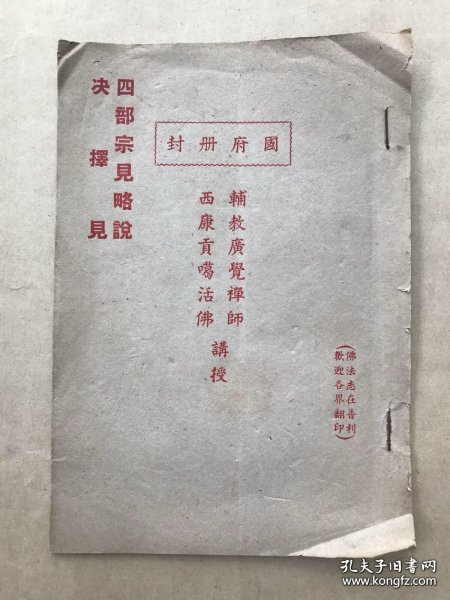 四部宗見略說
決擇見
國府册封
輔教廣覺禪師
西康貢噶活佛
講授
(佛法志在普利
歡迎各界翻印)
孔夫子旧书网
www.kongfz.com